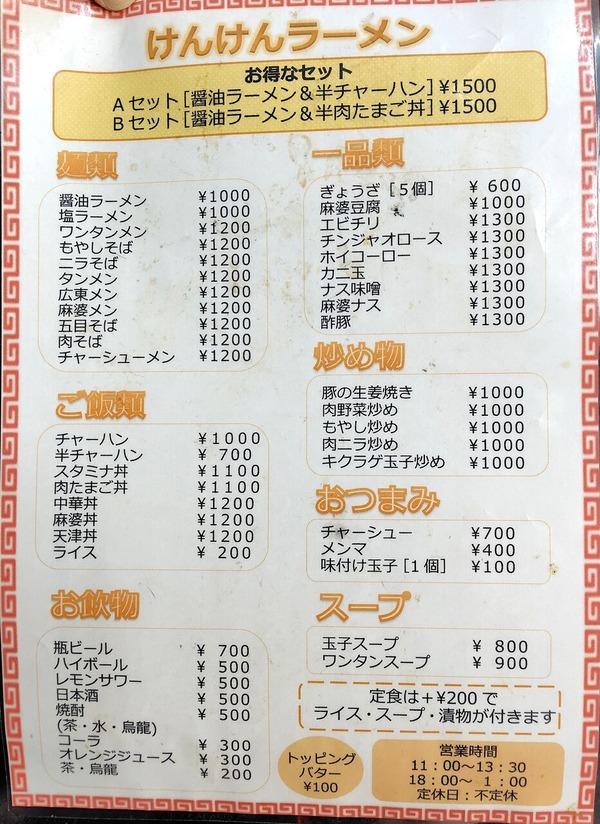 けんけんラーメン
お得なセット
Aセット[醤油ラーメン＆半チャーハン]¥1500
Bセット[醤油ラーメン＆半肉たまご丼]¥1500
麺類
醤油ラーメン ¥1000
塩ラーメン ¥1000
ワンタンメン ¥1200
もやしそば ¥1200
ニラそば ¥1200
タンメン ¥1200
広東メン ¥1200
麻婆メン ¥1200
五目そば ¥1200
肉そば ¥1200
チャーシューメン ¥1200
ご飯類
チャーハン ¥1000
半チャーハン ¥ 700
スタミナ丼 ¥1100
肉たまご丼 ¥1100
中華丼 ¥1200
麻婆丼 ¥1200
天津丼 ¥1200
ライス ¥ 200
お飲物
瓶ビール ¥ 700
ハイボール ¥ 500
レモンサワー ¥ 500
日本酒 ¥ 500
焼酎 ¥ 500
(茶・水・烏龍)
コーラ ¥ 300
オレンジジュース ¥ 300
茶・烏龍 ¥ 200
一品類
ぎょうざ[5個] ¥ 600
麻婆豆腐 ¥1000
エビチリ ¥1300
チンジャオロース ¥1300
ホイコーロー ¥1300
カニ玉 ¥1300
ナス味噌 ¥1300
麻婆ナス ¥1300
酢豚 ¥1300
炒め物
豚の生姜焼き ¥1000
肉野菜炒め ¥1000
もやし炒め ¥1000
肉ニラ炒め ¥1000
キクラゲ玉子炒め ¥1000
おつまみ
チャーシュー ¥700
メンマ ¥400
味付け玉子[1個] ¥100
スープ
玉子スープ ¥ 800
ワンタンスープ ¥ 900
定食は＋¥200で
ライス・スープ・漬物が付きます
トッピング
バター
¥100
営業時間
11：00〜13：30
18：00〜 1：00
定休日：不定休